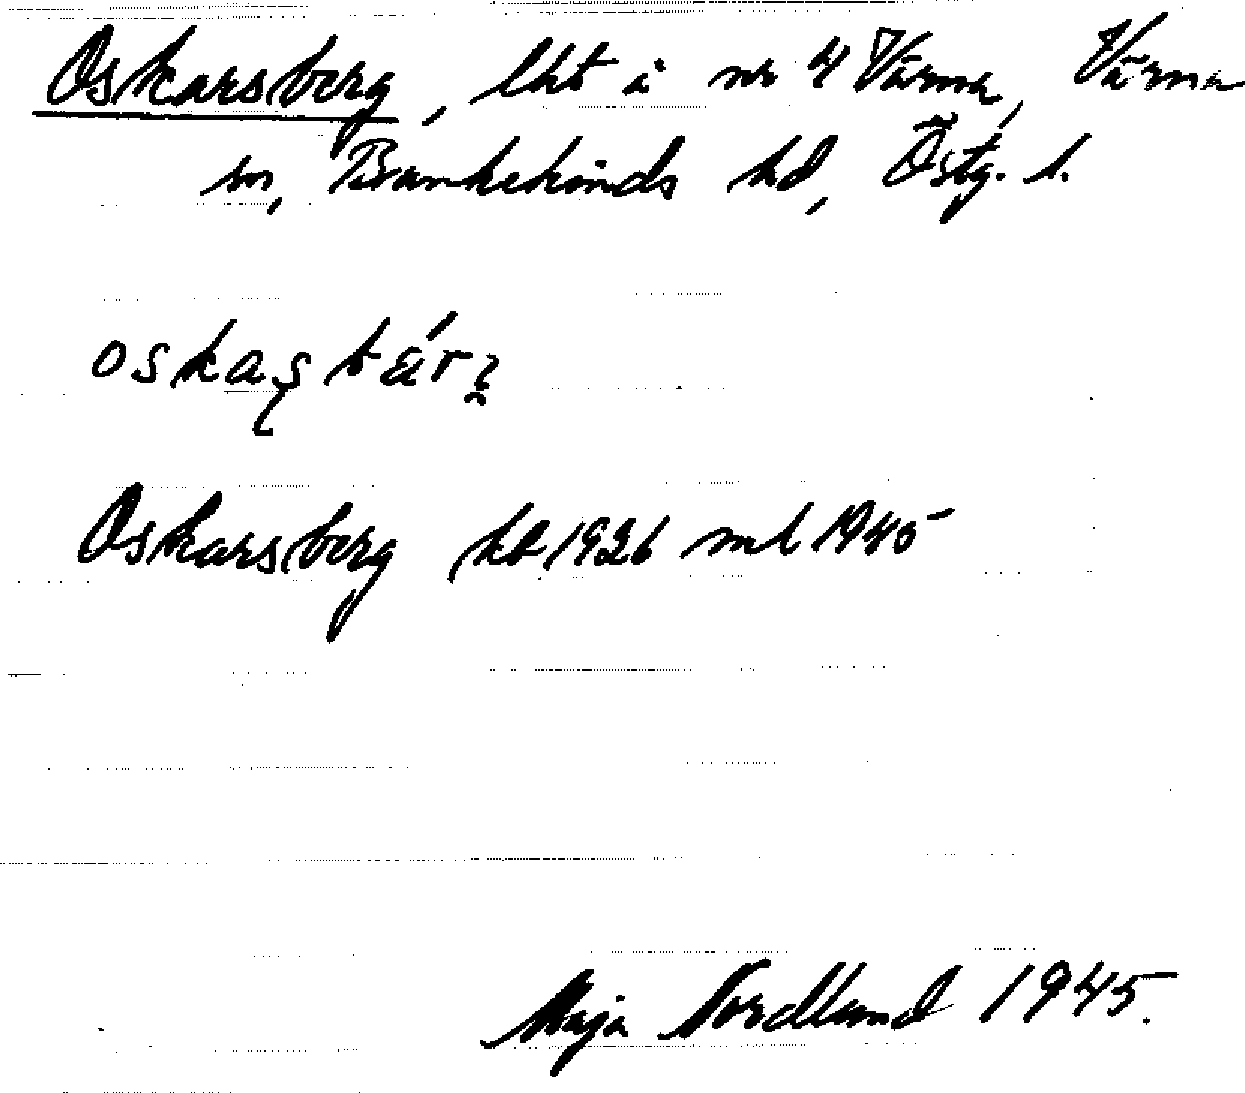 Oskarsberg, lht i nr 4 Värna, Värna
sn, Bankekinds hd, Östg. l.
Oskarsberg hb 1926 ml 1945
Maja Nordlund 1945.